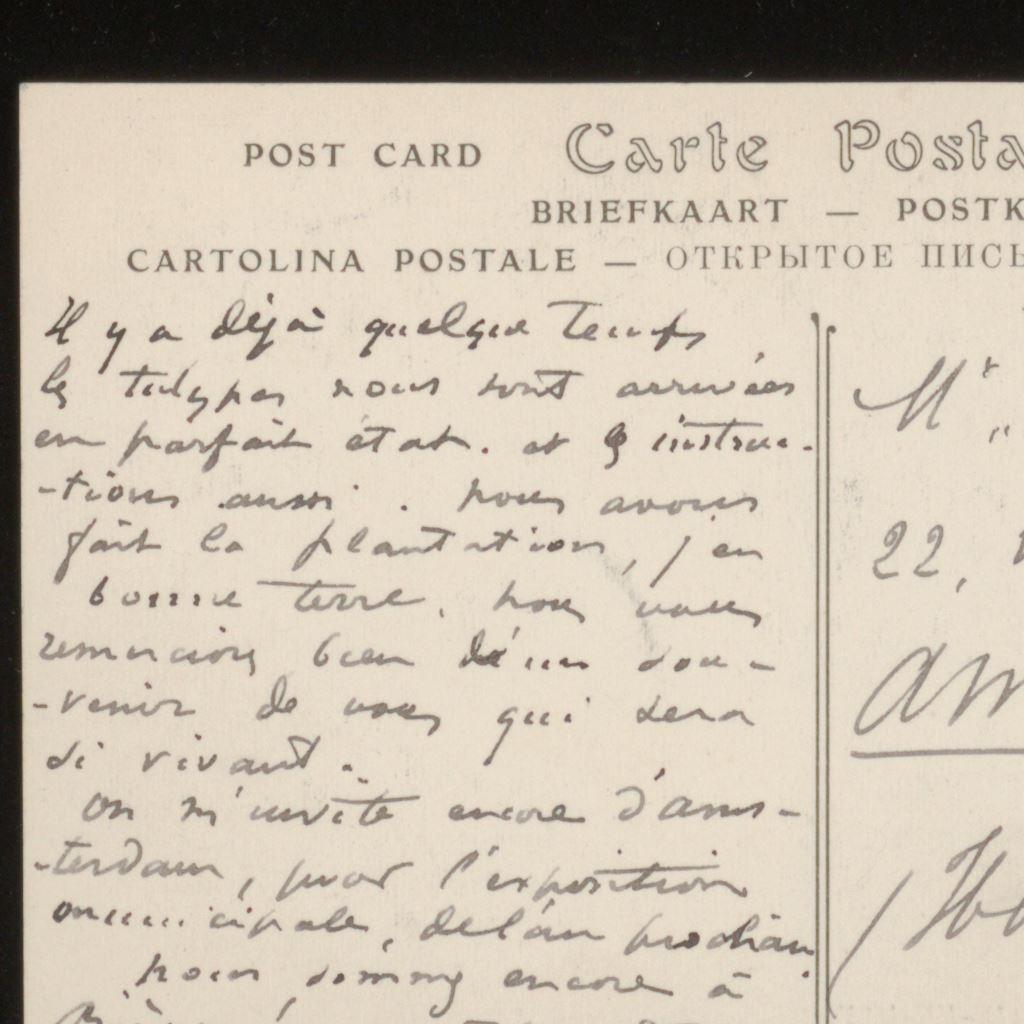 POST CARD Carte Posta
BRIEFKAART — POSTK
CARTOLINA POSTALE — ОТКРЫТОЕ ПИСЬ
Il y a déjà quelque temps
les tulypes nous sont arrivées
en parfait état. et les instruc-
-tions aussi. nous avons
fait la plantation, en
bonne terre. nous vous
remercions bien d'un sou-
-venir de vous qui sera
si vivant.
On m'invite encore d'Ams-
-terdam, pour l'exposition
municipale, de l'an prochain
nous sommes encore à
Mr
22,
Am